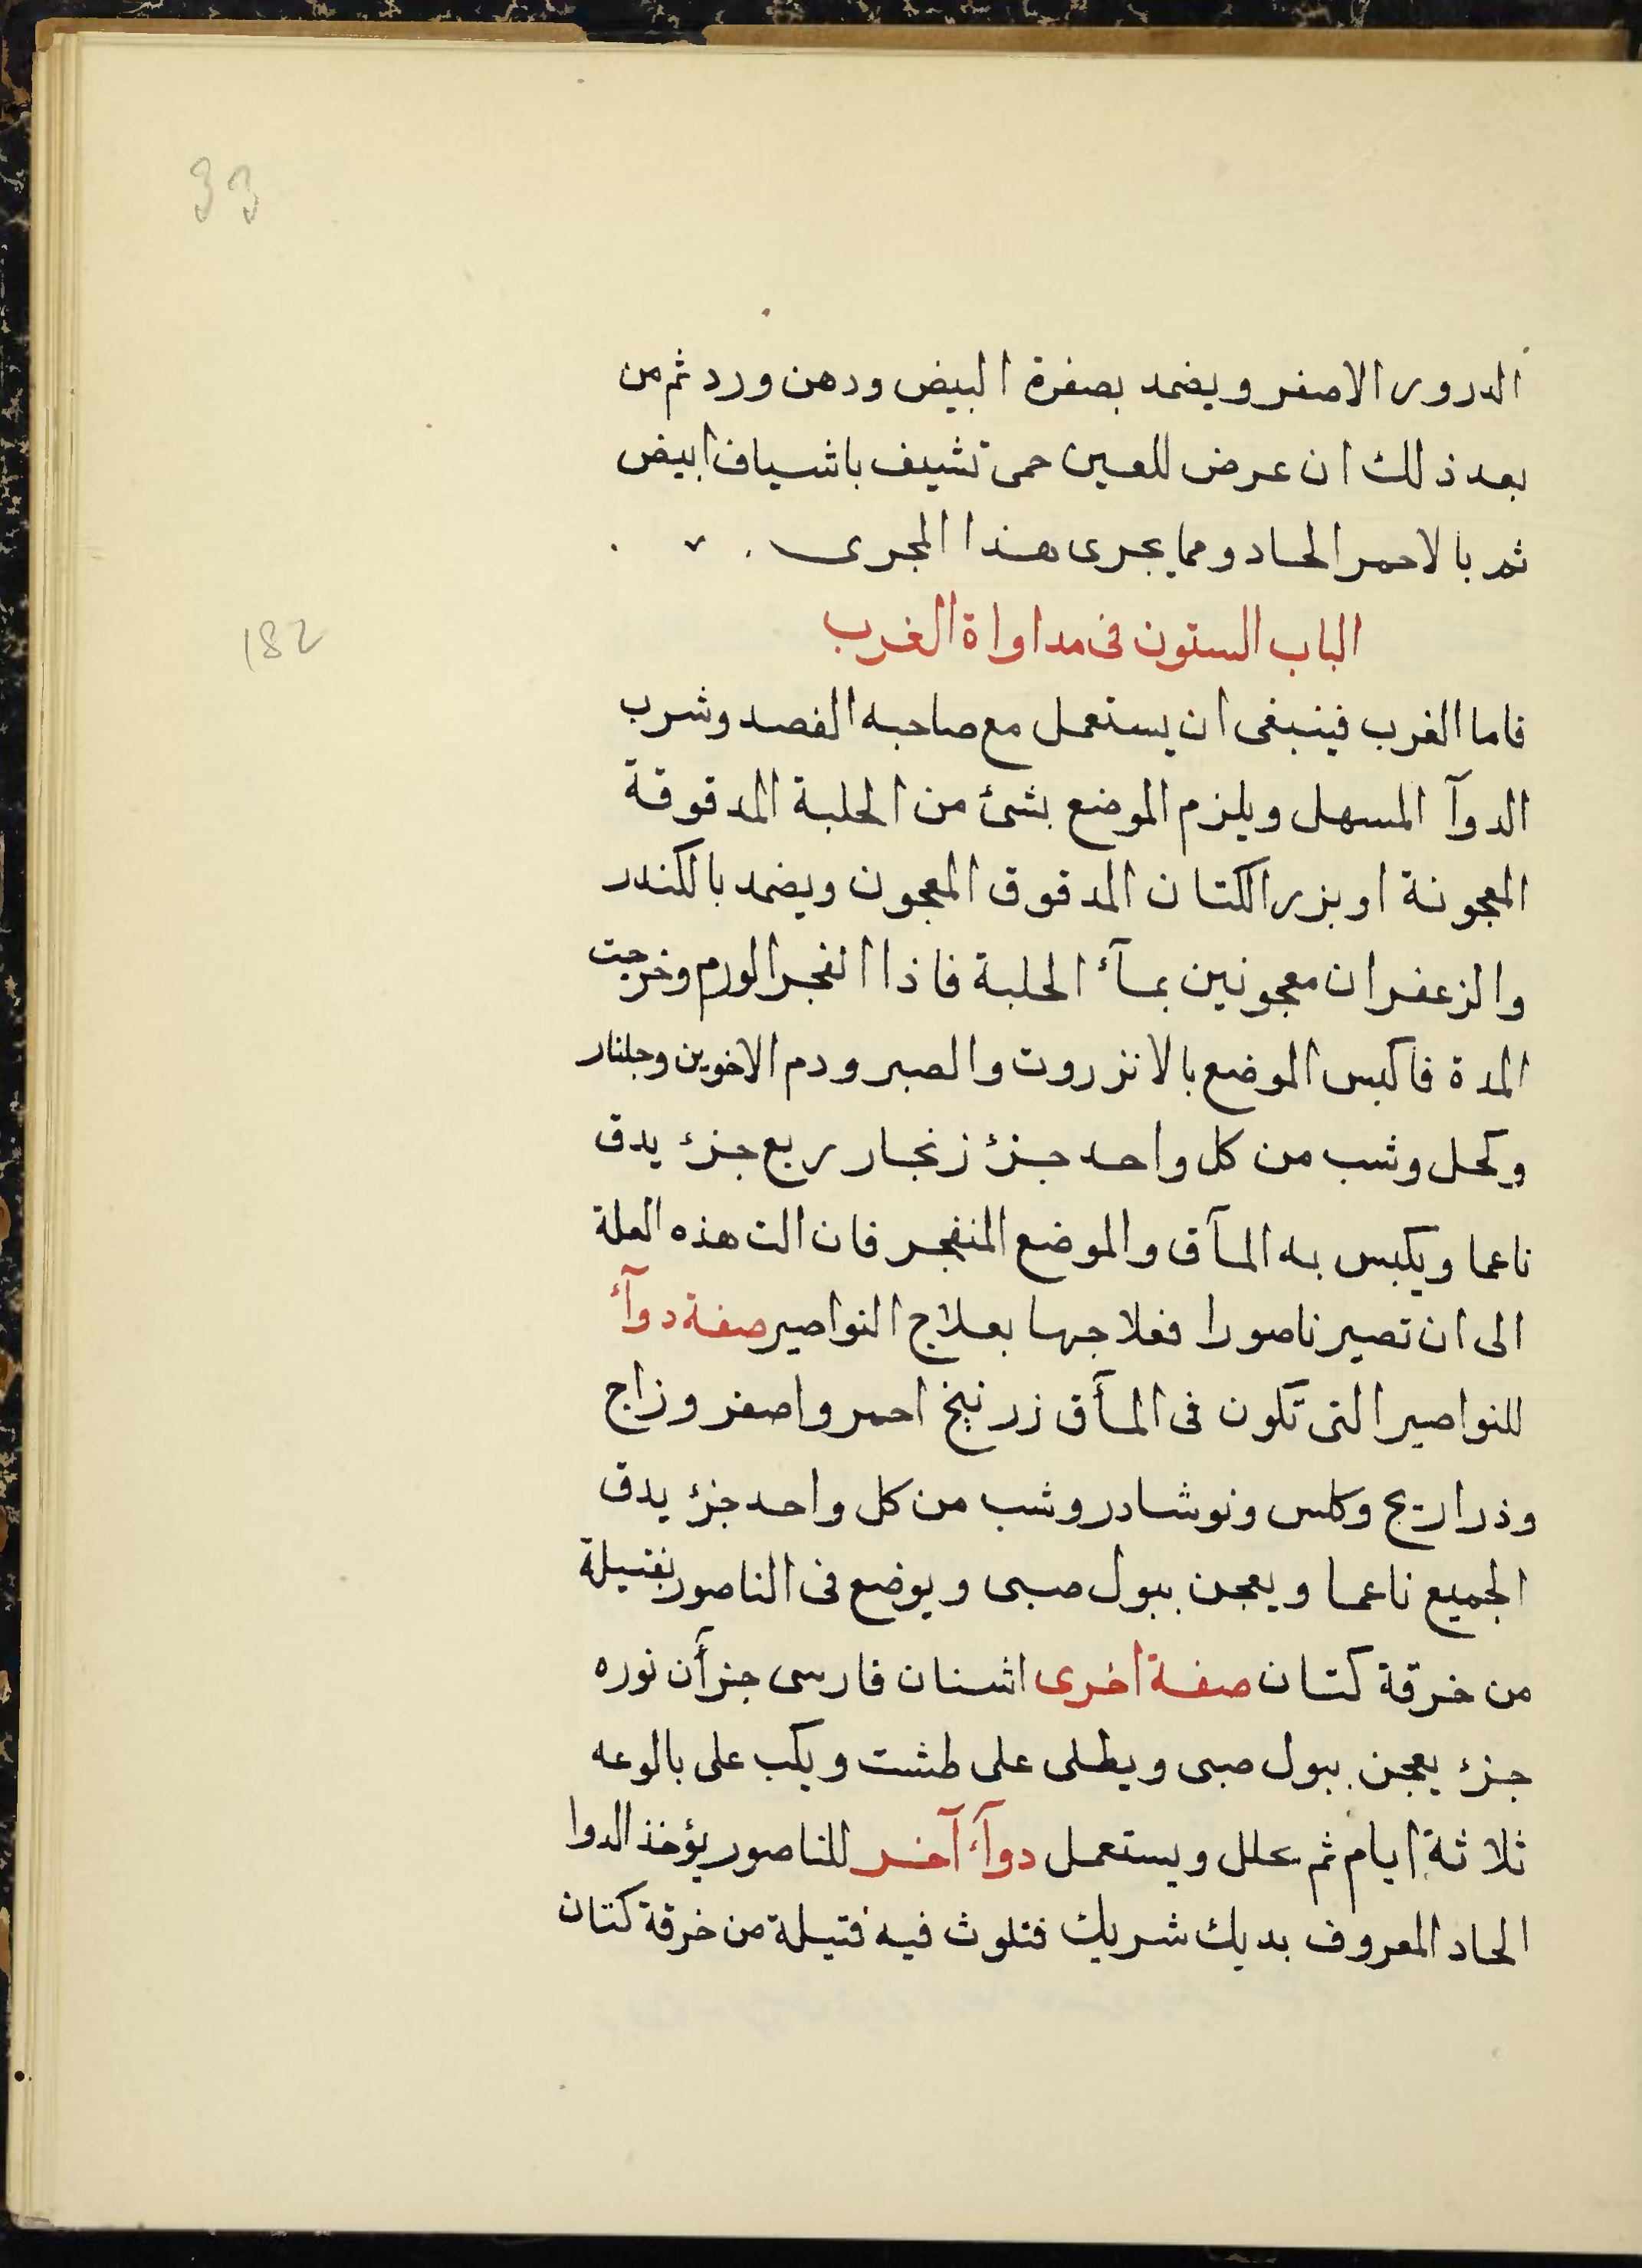 33
الدرور الاصفر ويضمد بصفرة البيض ودهن ورد ثم من
بعد ذلك ان عرض للعين حمى تشيف باشياف ابيض
ثم بالاحمر الحاد ومما يجرى هذا المجرى
182
الباب الستون فى مداواة الغرب
فاما الغرب فينبغى ان يستعمل مع صاحبه الفصد وشرب
الدوآ المسهل ويلزم الموضع بشئ من الحلبة المدقوقة
المعجونة او بزر الكتان المدقوق المعجون ويضمد بالكندر
والزعفران معجونين بمآء الحلبة فاذا انفجر الورم وخرجت
المدة فاكبس الموضع بالانزروت والصبر ودم الاخوين وجلنار
وكحل وشب من كل واحد جزء زنجار ربع جزء يدق
ناعما ويكبس به المآق والموضع المنفجر فان الت هذه العلة
الى ان تصير ناصورا فعلاجها بعلاج النواصير صفة دوآء
للنواصير التى تكون فى المآق زرنيخ احمر واصفر وزاج
وذراريح وكلس ونوشادر وشب من كل واحد جزء يدق
الجميع ناعما ويعجن ببول صبى ويوضع فى الناصور بفتيلة
من خرقة كتان صفة اخرى اشنان فارسى جزأن نوره
جزء يعجن ببول صبى ويطلى على طشت ويكب على بالوعه
ثلاثة ايام ثم يحلل ويستعمل دوآء آخر للناصور يؤخذ الدوا
الحاد المعروف بديك شريك فتلوث فيه فتيلة من خرقة كتان